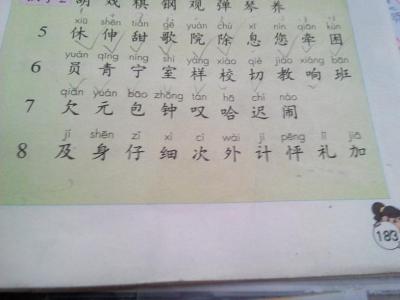 胡 戏 棋 钢 观 弹 琴 养
xiū shēn tián gē yuàn chú xī nín qiān kùn
5 休 伸 甜 歌 院 除 息 您 牵 困
yuán qīng níng shì yàng xiào qiè jiāo xiǎng bān
6 员 青 宁 室 样 校 切 教 响 班
qiàn yuán bāo zhōng tàn hā chí nào
7 欠 元 包 钟 叹 哈 迟 闹
jí shēn zǐ xì cì wài jì pēng lǐ jiā
8 及 身 仔 细 次 外 计 怦 礼 加
183